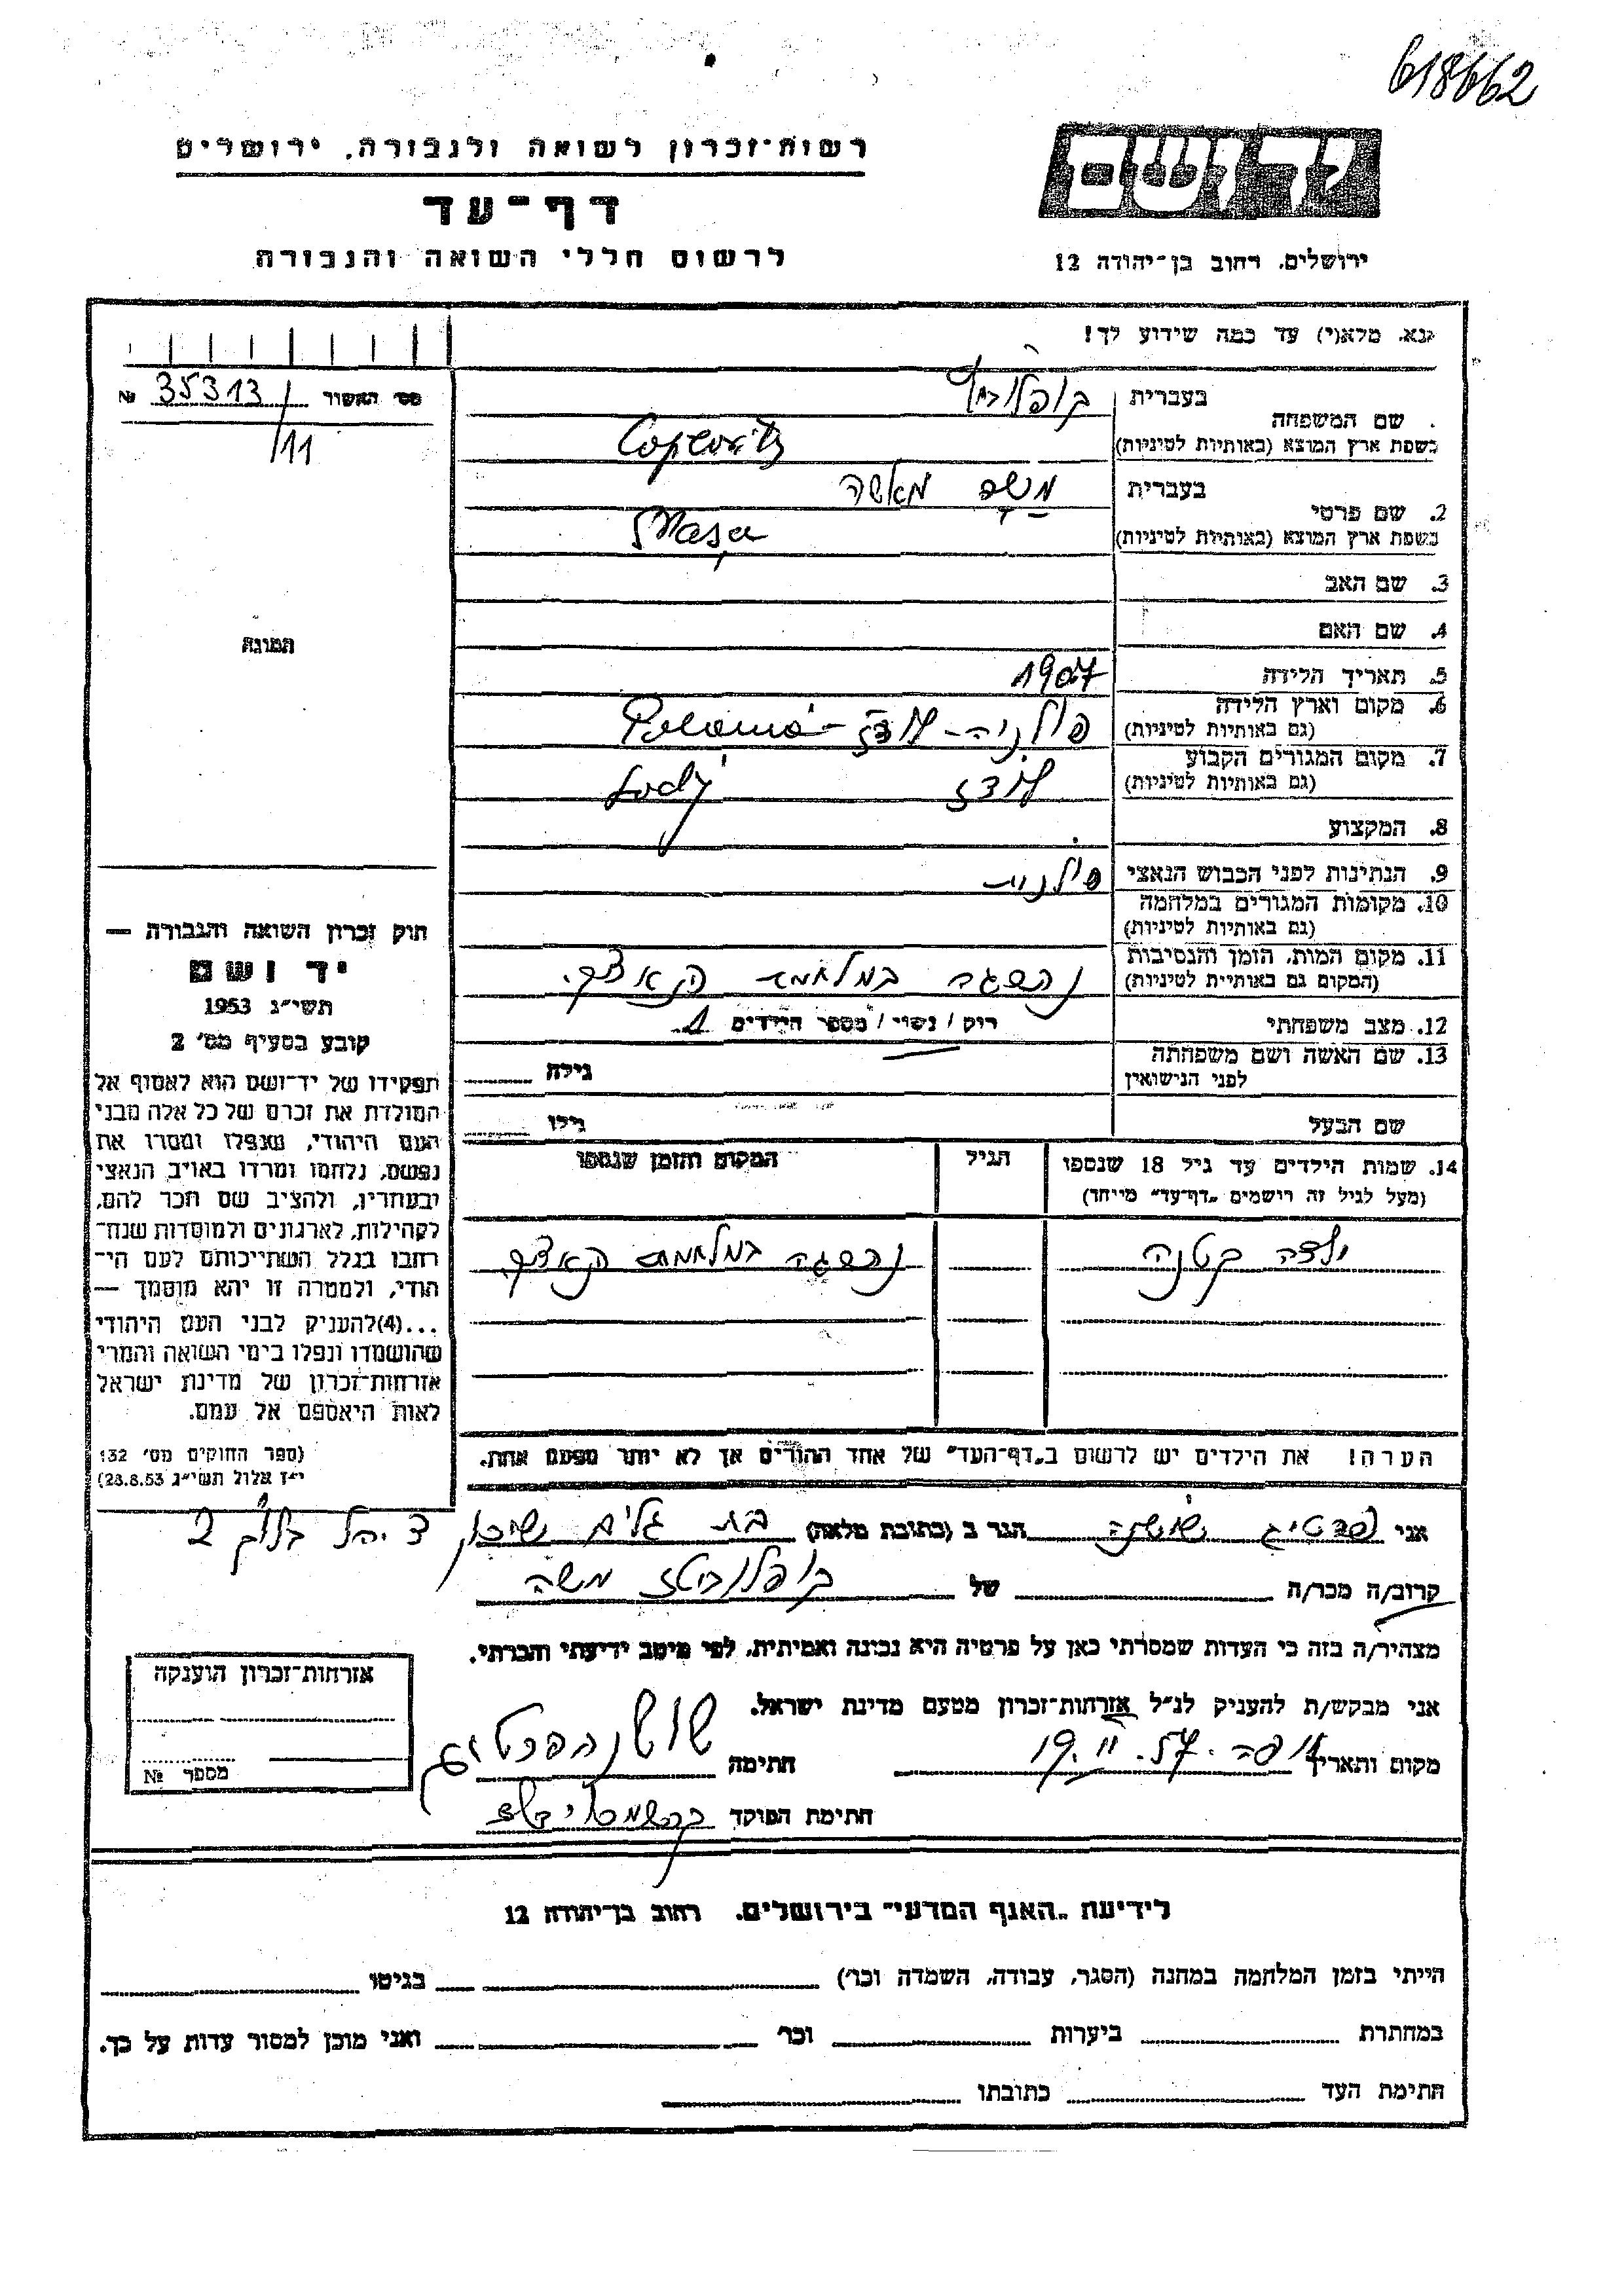 618662
רשות־זכרון לשואה ולגבורה, ירושלים
דף־עד
לרשום חללי השואה והגבורה
יד ושם
ירושלים, רחוב בן־יהודה 12
נא. מלא(י) עד כמה שידוע לך!
מס׳ האשור № 35313/11
שם המשפחה
בעברית
בשפת ארץ המוצא (באותיות לטיניות)
2. שם פרטי
בעברית משה מאשה
בשפת ארץ המוצא (באותיות לטיניות) Masa
3. שם האב
4. שם האם
תמונה
5. תאריך הלידה 1907
6. מקום וארץ הלידה פולניה - לודז -
(גם באותיות לטיניות)
7. מקום המגורים הקבוע לודז Lodj
(גם באותיות לטיניות)
8. המקצוע
9. הנתינות לפני הכבוש הנאצי פולנית
10. מקומות המגורים במלחמה
(גם באותיות לטיניות)
11. מקום המות, הזמן והנסיבות נהרגה במלחמת הנאצים
(המקום גם באותיות לטיניות)
12. מצב משפחתי רוק / נשוי / מספר הילדים 1
13. שם האשה ושם משפחתה
לפני הנישואין גילה
שם הבעל גילו
14. שמות הילדים עד גיל 18 שנספו
(מעל לגיל זה רושמים „דף־עד״ מייחד)
הגיל
המקום והזמן שנספו
ילדה קטנה נהרגה במלחמת הנאצים
הערה! את הילדים יש לרשום ב„דף־העד״ של אחד ההורים אך לא יותר מפעם אחת.
חוק זכרון השואה והגבורה —
יד ושם
תשי״ג 1953
קובע בסעיף מס׳ 2
תפקידו של יד־ושם הוא לאסוף אל
המולדת את זכרם של כל אלה מבני
העם היהודי, שנפלו ומסרו את
נפשם, נלחמו ומרדו באויב הנאצי
ובעוזריו, ולהציב שם וזכר להם,
לקהילות, לארגונים ולמוסדות שנח־
רבו בגלל השתייכותם לעם הי־
הודי, ולמטרה זו יהא מוסמך —
...(4) להעניק לבני העם היהודי
שהושמדו ונפלו בימי השואה והמרי
אזרחות־זכרון של מדינת ישראל
לאות היאספם אל עמם.
(ספר החוקים מס׳ 132
י״ז אלול תשי״ג 28.8.53)
אני שושנה הגר ב (כתובת מלאה) בת גלים שיכון צ.יהל בלוק 2
קרוב/ה מכר/ה של קופלוביטז משה
מצהיר/ה בזה כי העדות שמסרתי כאן על פרטיה היא נכונה ואמיתית, לפי מיטב ידיעתי והכרתי.
אני מבקש/ת להעניק לנ״ל אזרחות־זכרון מטעם מדינת ישראל.
מקום ותאריך חיפה 19.II.57 חתימה שושנה
חתימת הפוקד
אזרחות־זכרון הוענקה
מספר №
לידיעת „האגף המדעי״ בירושלים, רחוב בן־יהודה 12
הייתי בזמן המלחמה במחנה (הסגר, עבודה, השמדה וכו׳) בגיטו
במחתרת ביערות וכו׳ ואני מוכן למסור עדות על כך.
חתימת העד כתובתו